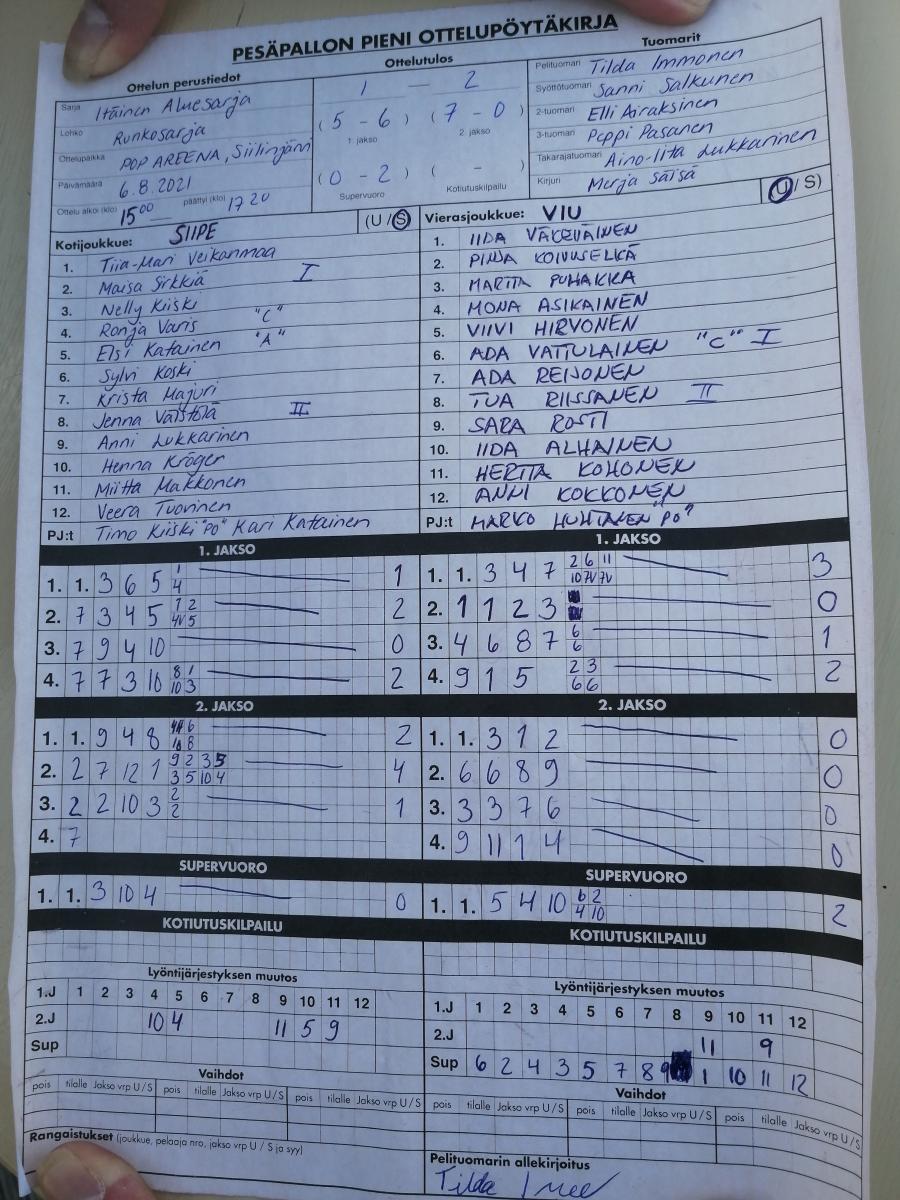 PESÄPALLON PIENI OTTELUPÖYTÄKIRJA
Ottelun perustiedot
Sarja Itäinen Aluesarja
Lohko Runkosarja
Ottelupaikka POP AREENA, Siilinjärvi
Päivämäärä 6.8.2021
Ottelu alkoi (klo) 15 00 päättyi (klo) 17 20
Ottelutulos
1 - 2
(5 - 6) (7 - 0)
1. jakso 2. jakso
(0 - 2) ( - )
Supervuoro Kotiutuskilpailu
Tuomarit
Pelituomari Tilda Immonen
Syöttötuomari Sanni Salkunen
2-tuomari Elli Airaksinen
3-tuomari Peppi Pasanen
Takarajatuomari Aino-Iita Lukkarinen
Kirjuri Merja Säisä
Kotijoukkue: SIIPE (U / S)
1. Tiia-Mari Veikanmaa
2. Maisa Sirkkiä I
3. Nelly Kiiski
4. Ronja Varis "C"
5. Elsi Katainen "A"
6. Sylvi Koski
7. Krista Majuri
8. Jenna Väistölä II
9. Anni Lukkarinen
10. Henna Kröger
11. Miitta Makkonen
12. Veera Tuovinen
PJ:t Timo Kiiski "PO" Kari Katainen
Vierasjoukkue: VIU (U / S)
1. IIDA VÄKEVÄINEN
2. PINJA KOIVUSELKÄ
3. MARTTA PUHAKKA
4. MONA ASIKAINEN
5. VIIVI HIRVONEN
6. ADA VATTULAINEN "C" I
7. ADA REIJONEN
8. TUA RIISSANEN II
9. SARA ROSTI
10. IIDA ALHAINEN
11. HERTTA KOHONEN
12. ANNI KOKKONEN
PJ:t MARKO HUHTANEN "PO"
1. JAKSO
1. 1. 3 6 5 1 4 1
2. 7 3 4 5 1 2 4V 5 2
3. 7 9 4 10 0
4. 7 7 3 10 8 1 10 3 2
2. JAKSO
1. 1. 9 4 8 6 10 8 2
2. 2 7 12 1 9 2 3 5 3 5 10 4 4
3. 2 2 10 3 2 2 1
4. 7
SUPERVUORO
1. 1. 3 10 4 0
KOTIUTUSKILPAILU
Lyöntijärjestyksen muutos
1.J 1 2 3 4 5 6 7 8 9 10 11 12
2.J 10 4 11 5 9
Sup
Vaihdot
pois tilalle Jakso vrp U / S pois tilalle Jakso vrp U / S pois tilalle Jakso vrp U / S
Rangaistukset (joukkue, pelaaja nro, jakso vrp U / S ja syy)
1. JAKSO
1. 1. 3 4 7 2 6 11 10 7V 7V 3
2. 1 1 2 3 0
3. 4 6 8 7 6 6 1
4. 9 1 5 2 3 6 6 2
2. JAKSO
1. 1. 3 1 2 0
2. 6 6 8 9 0
3. 3 3 7 6 0
4. 9 11 1 4 0
SUPERVUORO
1. 1. 5 4 10 6 2 4 10 2
KOTIUTUSKILPAILU
Lyöntijärjestyksen muutos
1.J 1 2 3 4 5 6 7 8 9 10 11 12
2.J 11 9
Sup 6 2 4 3 5 7 8 9 1 10 11 12
Vaihdot
pois tilalle Jakso vrp U / S pois tilalle Jakso vrp U / S pois tilalle Jakso vrp U / S
Pelituomarin allekirjoitus
Tilda